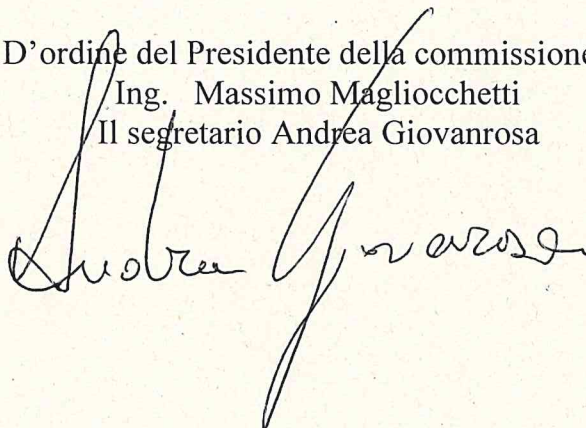 D'ordine del Presidente della commissione
Ing. Massimo Magliocchetti
Il segretario Andrea Giovanrosa
Andrea Giovarosa